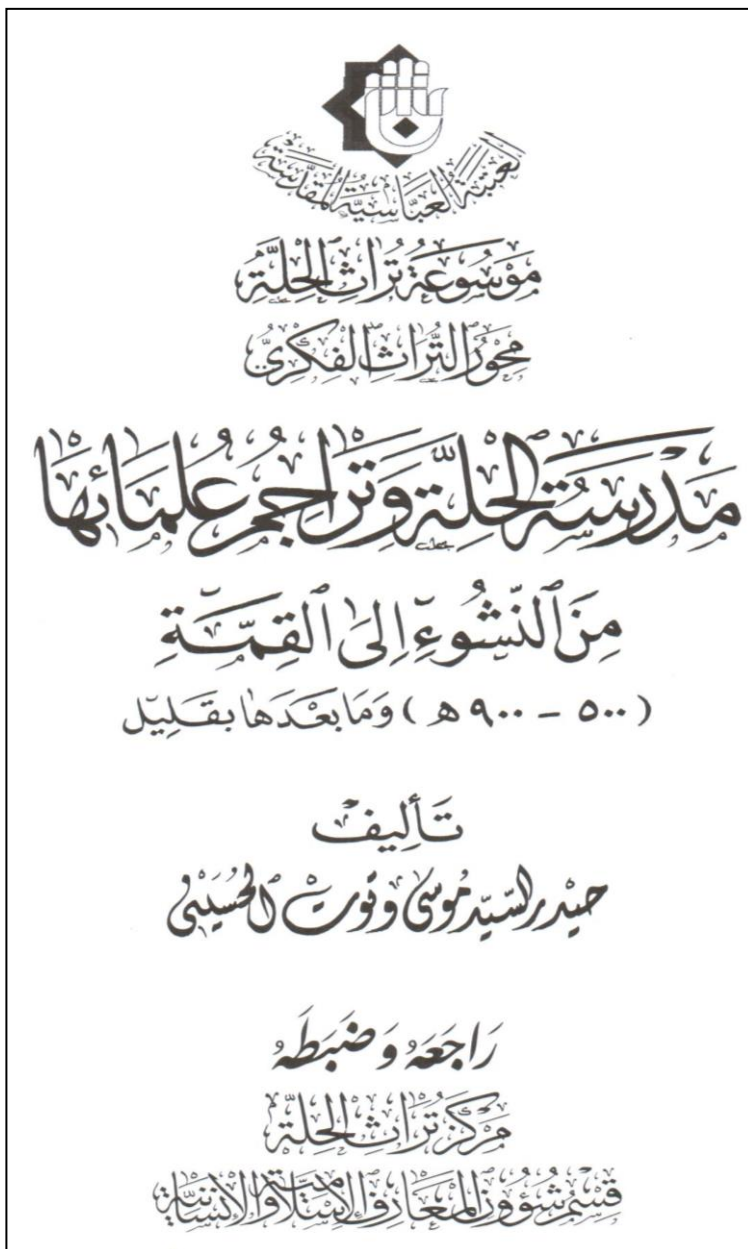 العتبة العباسية المقدسة
مَوْسُوعَةُ تُرَاثِ الحِلَّةِ
مِحْوَرُ التُّرَاثِ الفِكْرِيِّ
مَدْرَسَةُ الحِلَّةِ وَتَرَاجِمُ عُلَمَائِهَا
مِنَ النُّشُوءِ إِلَى القِمَّةِ
(٥٠٠ - ٩٠٠ هـ) وَمَا بَعْدَهَا بِقَلِيل
تَأْلِيف
حيدر السيّد مُوسى وتوت الحُسيني
رَاجَعَهُ وَضَبَطَهُ
مَرْكَزُ تُرَاثِ الحِلَّةِ
قِسْمُ شُؤُونِ المَعَارِفِ الإِسْلَامِيَّةِ وَالإِنْسَانِيَّةِ